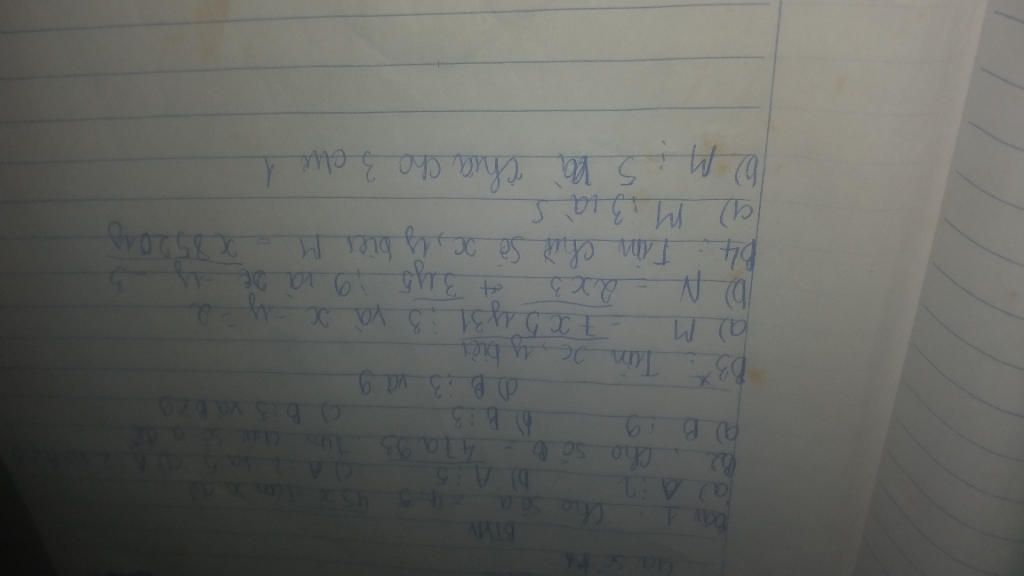 BTVN
Bài 1: Cho số a = 45 45x tìm x để
a) A ⋮ 2 b) A ⋮ 5 c) A ⋮ 2 và 5 d) A
B2. Cho số b = 47a93 Tìm chữ số a để
a) B ⋮ 9 b) B ⋮ 3 c) B ⋮ 3 và
d) B ⋮ 3 và 9
B3*: Tìm x, y biết
a) M = 7x5y31 ⋮ 3 và x - y = 2
b) N = 2x3 + 3y5 ⋮ 9 và x - y = 3
B4: Tìm chữ số x, y biết M = x8520y
a) M ⋮ 3 và 5
b) M ⋮ 5 và chia cho 3 dư 1